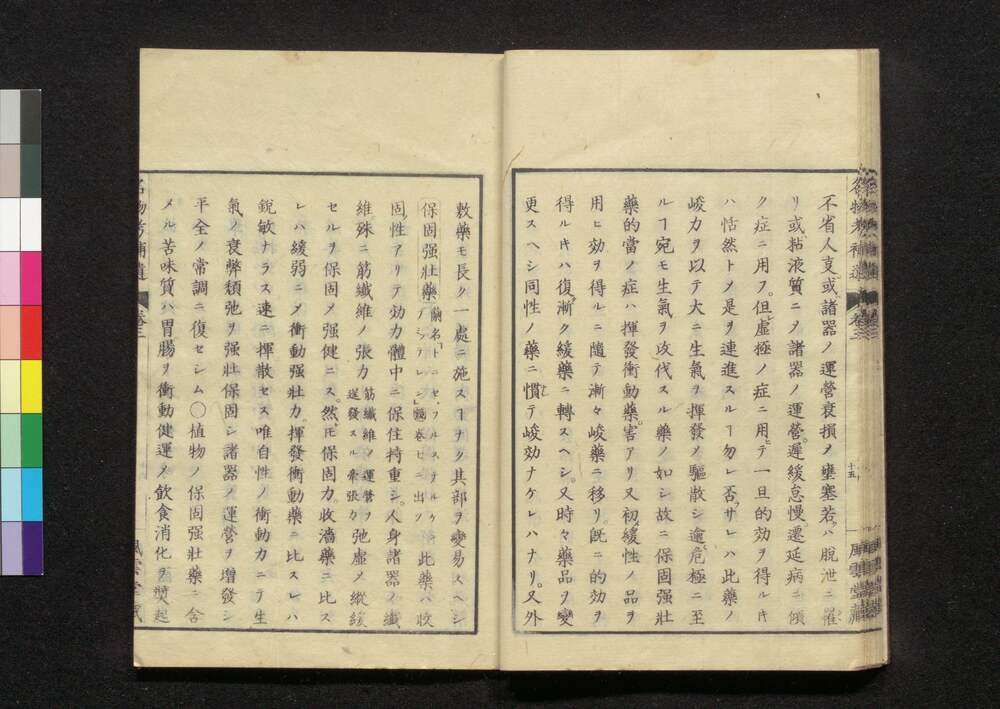 不省人㕝或諸器ノ運營衰損〆壅塞若クハ脫泄ニ罹
リ或ハ黏液質ニ〆諸器ノ運營遲緩怠慢遷延病ニ傾
ク症ニ用フ。但虛極ノ症ニ用ヒテ一旦的効ヲ得ルキ
ハ恬然ト〆是ヲ連進スルヿ勿レ否サレハ此藥ノ
峻力ヲ以テ大ニ生氣ヲ揮發〆驅散シ遂ニ危極ニ至
ルヿ宛モ生氣ヲ攻伐スル藥ノ如シ故ニ保固强壯
藥的當ノ症ハ揮發衝動藥害アリ又初メ緩性ノ品ヲ
用ヒ効ヲ得ルニ隨テ漸々峻藥ニ移リ。旣ニ的効ヲ
得ルキハ復漸ク緩藥ニ轉スヘシ。又時々藥品ヲ變
更スヘシ同性ノ藥ニ慣レテ峻効ナケレハナリ。又外
名物考補遺 卷三 十五 風雲堂藏
敷藥モ長ク一處ニ施スヿナク其部ヲ變易スヘシ
保固强壯藥 此藥ハ收
固性アリテ効力體中ニ保住持重シ。人身諸器ノ纖
維殊ニ筋纖維ノ張力 筋纖維ノ運營ヲ 逞發スル牽張力 弛虛〆縱緩
セルヲ保固〆强健ニス。然レ𪜈保固力。收濇藥ニ比ス
レハ緩弱ニ〆衝動强壯力。揮發衝動藥ニ比スレハ
銳敏ナラス速ニ揮散セス唯自性ノ衝動力ニテ生
氣ノ衰弊頹弛ヲ强壯保固シ諸器ノ運營ヲ增發シ
平全ノ常調ニ復セシム〇植物ノ保固强壯藥ニ含
メル苦味質ハ胃腸ヲ衝動健運〆飮食消化ヲ奬起